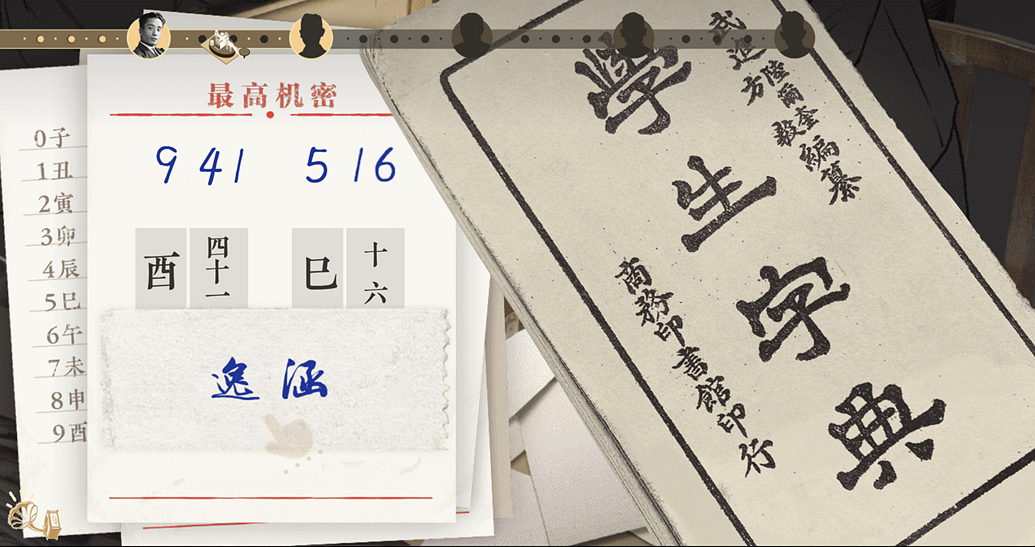 最高机密
9 41 516
酉 四十一 巳 十六
逸涵
0子
1丑
2寅
3卯
4辰
5巳
6午
7未
8申
9酉
學生字典
武進 陸爾奎
方毅 編纂
商務印書館印行